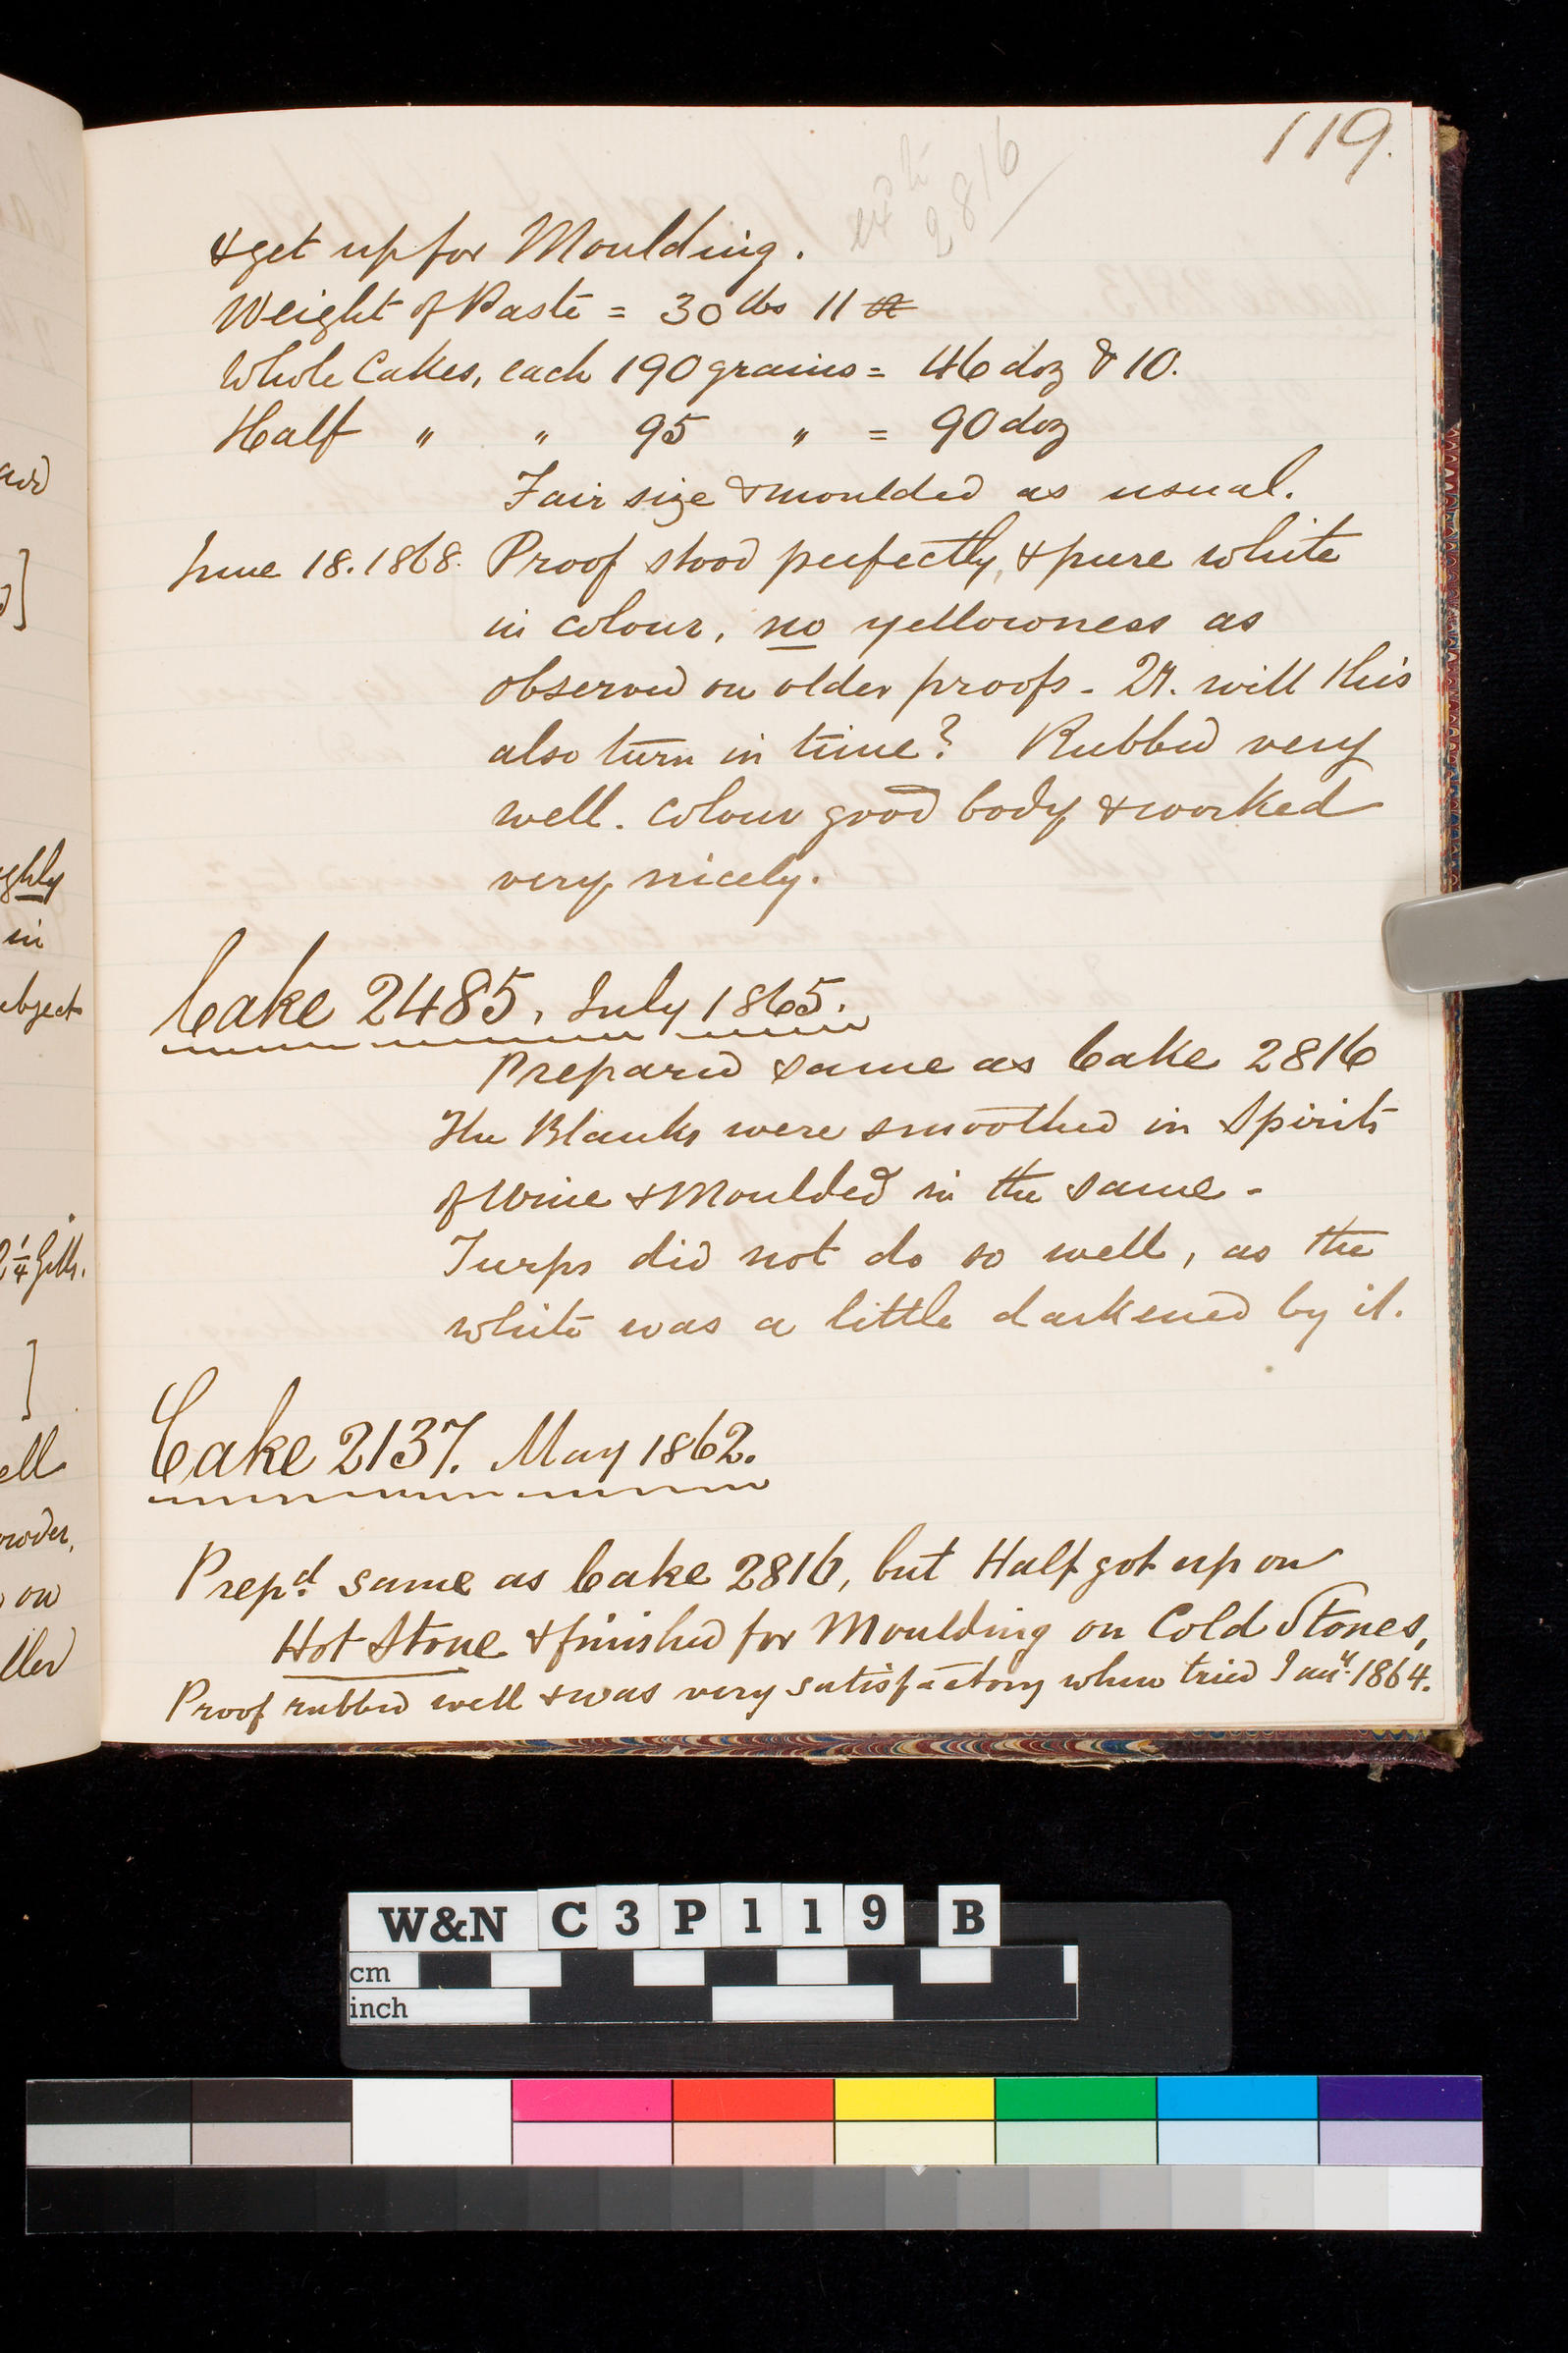 119.
2816
& get up for Moulding.
Weight of Paste = 30 lbs 11 oz
Whole Cakes, each 190 grains = 46 doz & 10.
Half " " 95 " = 90 doz
Fair size & moulded as usual.
June 18. 1868. Proof stood perfectly, & pure white
in colour, no yellowness as
observed on older proofs - Qy. will this
also turn in time? Rubbed very
well. Colour good body & worked
very nicely.
Cake 2485, July 1865.
Prepared same as Cake 2816
The Blanks were smoothed in Spirits
of Wine & Moulded in the same -
Turps did not do so well, as the
white was a little darkened by it.
Cake 2137. May 1862.
Prepd. same as Cake 2816, but Half got up on
Hot Stone & finished for Moulding on Cold Stones,
Proof rubbed well & was very satisfactory when tried Jany. 1864.
ghly
in
2 1/4 Gills.
ell
on
W&N C 3 P 1 1 9 B
cm
inch